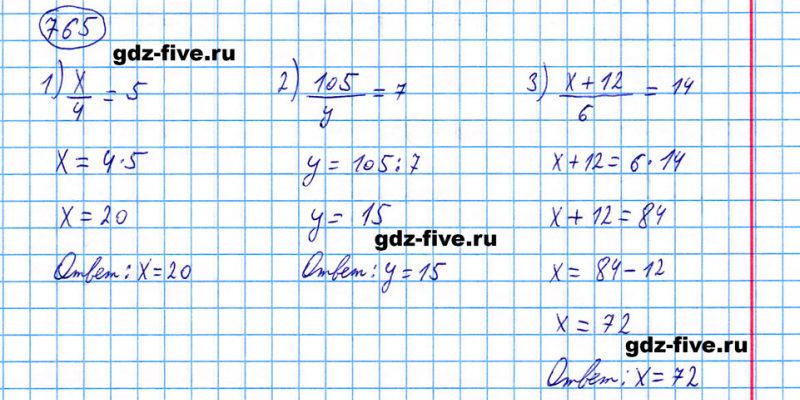 765
gdz-five.ru
1) x/4 = 5
x = 4·5
x = 20
Ответ: x = 20
2) 105/y = 7
y = 105:7
y = 15
gdz-five.ru
Ответ: y = 15
3) x+12/6 = 14
x+12 = 6·14
x+12 = 84
x = 84-12
x = 72
gdz-five.ru
Ответ: x = 72